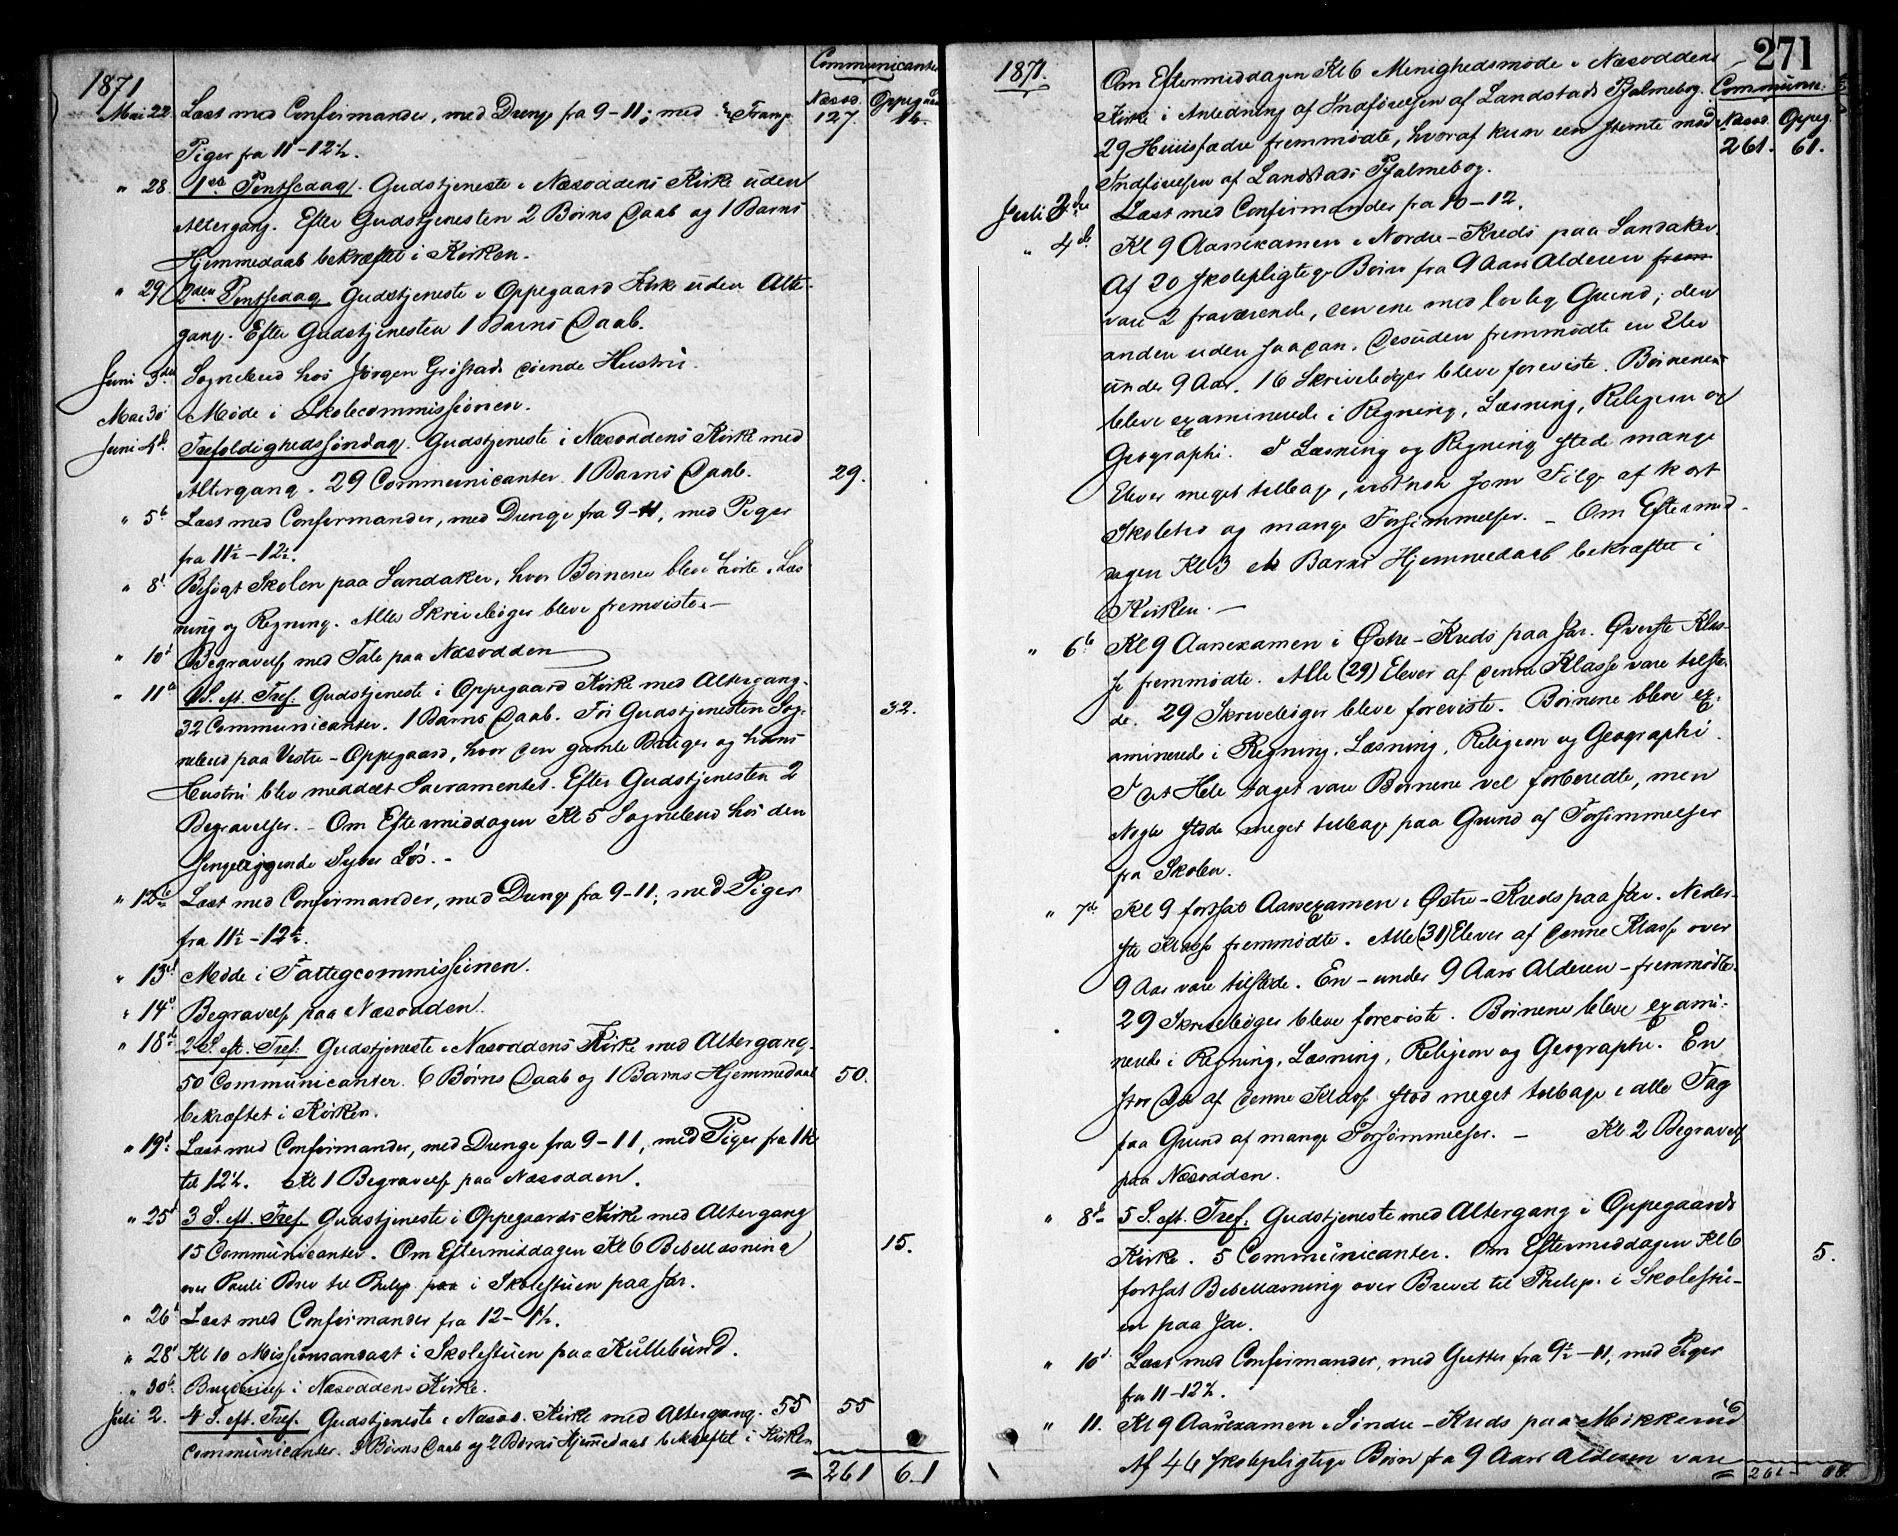 1871
Communicanter
Næsod. Oppegaard
Mai 22. Læst med Confirmander, med Drenge fra 9-11; med 127. 14.
Piger fra 11-12½.
" 28. 1ste Pintsedag. Gudstjeneste i Næsoddens Kirke uden
Altergang. Efter Gudstjenesten 2 Børns Daab og 1 Barns
Hjemmedaab bekræftet i Kirken.
" 29 2den Pintsedag Gudstjeneste i Oppegaard Kirke uden Alter-
gang. Efter Gudstjenesten 1 Barns Daab.
Juni 3die Sognebud hos Jørgen Grøstads døende Hustru.
Mai 30 Møde i Skolecommissionen.
Juni 4d. Trefoldighedssøndag. Gudstjeneste i Næsoddens Kirke med
Altergang. 29 Communicanter. 1 Barns Daab. 29.
" 5t Læst med Confirmander, med Drenge fra 9-11, med Piger
fra 11½-12½.
" 8d. Besøgt Skolen paa Sandaker, hvor Børnene bleve hørte i Læs
ning og Regning. Alle Skrivebøger bleve fremviste.-
" 10d Begravelse med Tale paa Næsodden
" 11te 1 S. eft. Tref. Gudstjeneste i Oppegaard Kirke med Altergang.
32 Communicanter. 1 Barns Daab. Før Gudstjenesten Sog- 32.
nebud paa Vestre-Oppegaard, hvor den gamle Bruger og hans
Hustru blev meddelt Sacramentet. Efter Gudstjenesten 2
Begravelser. - Om Eftermiddagen Kl 5 Sognebud hos den
sengeliggende Syver Løs. -
" 12te Læst med Confirmander, med Drenge fra 9-11; med Piger
fra 11½-12½.
" 13d Møde i Fattigcommissionen.
" 14d Begravelse paa Næsodden.
" 18de 2 S. eft. Tref. Gudstjeneste i Næsoddens Kirke med Altergang.
50 Communicanter. 6 Børns Daab og 1 Barns Hjemmedaab 50.
bekræftet i Kirken.
" 19d. Læst med Confirmander, med Drenge fra 9-11, med Piger fra 11½
til 12½. Kl 1 Begravelse paa Næsodden.
" 25d 3 S. eft. Tref. Gudstjeneste i Oppegaards Kirke med Altergang
15 Communicanter. Om Eftermiddagen Kl 6 Bibellæsning 15.
over Pauli Brev til Philip. paa i Skolestuen paa Jar.
" 26d Læst med Confirmander fra 12-1½.
" 28d Kl 10 Missionsandagt i Skolestuen paa Kullebund.
" 30te i Næsoddens Kirke.
Juli 2. 4 S. eft. Tref. Gudstjeneste i Næsod. Kirke med Altergang. 55 55
Communicanter. 3 Børns Daab og 2 Børns Hjemmedaab bekræftet i Kirken
= 261 61
271
1871.
Communic.
Næsod. Oppeg.
261. 61.
Om Eftermiddagen Kl 6 Menighedsmøde i Næsoddens
Kirke i Anledning af Indførelsen af Landstads Psalmebog.
29 Huusfædre fremmødte, hvoraf kun een stemte mod
Indførelsen af Landstads Psalmebog.
Juli 3die Læst med Confirmander fra 10-12.
" 4de Kl 9 Aarsexamen i Nordre-Kreds paa Sandaker.
Af 20 skolepligtige Børn fra 9 Aars Alderen frem
vare 2 fraværende, den ene med lovlig Grund; den
anden uden saadan. Desuden fremmødte en Elev
under 9 Aar. 16 Skrivebøger bleve foreviste. Børnene
bleve examinerede i Regning, Læsning, Religion og
Geographi. I Læsning og Regning stode mange
Elever meget tilbage, vistnok som Følge af kort
Skoletid og mange Forsømmelser. - Om Eftermid-
dagen Kl 3 et Barns Hjemmedaab bekræftet i
Kirken. -
" 6te Kl 9 Aarsexamen i Østre-Kreds paa Jar. Øverste Klas-
se fremmødte. Alle (29) Elever af denne Klasse vare tilste-
de. 29 Skrivebøger bleve foreviste. Børnene bleve ex-
aminerede i Regning, Læsning, Religion og Geographi.
I det Hele taget vare Børnene vel forberedte, men
Nogle stode meget tilbage paa Grund af Forsømmelser
fra Skolen.
" 7de Kl 9 fortsat Aarsexamen i Østre-Kreds paa Jar. Neder-
ste Klasse fremmødte. Alle (31) Elever af denne Klasse over
9 Aar vare tilstede. En - under 9 Aars Alderen - fremmødte.
29 Skrivebøger bleve foreviste. Børnene bleve exami-
nerede i Regning, Læsning, Religion og Geographi. En
stor Del af denne Klasse stod meget tilbage i alle Fag
paa Grund af mange Forsømmelser. - Kl 2 Begravelse
paa Næsodden.
" 8d- 5 S. eft. Tref. Gudstjeneste med Altergang i Oppegaards
Kirke. 5 Communicanter. Om Eftermiddagen Kl 6 5.
fortsat Bibellæsning over Brevet til Philip. i Skolestu-
en paa Jar.
" 10d. Læst med Confirmander, med Gutter fra 9½-11, med Piger
fra 11-12½.
" 11. Kl 9 Aarsexamen i Søndre-Kreds paa Mokkerud
Af 46 skolepligtige Børn fra 9 Aars Alderen vare
= 261 66